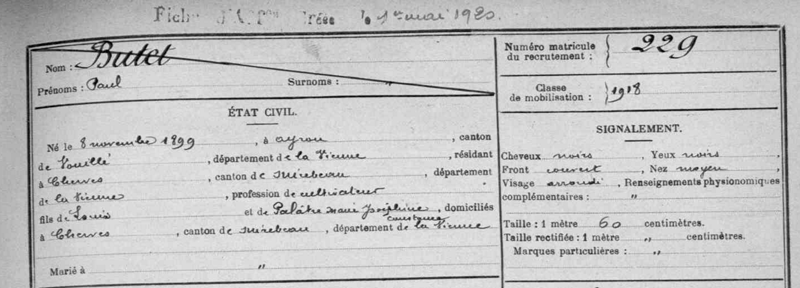 Fiche créée le 1er mai 1920.
Nom : Butet
Prénoms : Paul Surnoms : "
ÉTAT CIVIL.
Né le 8 novembre 1899, à ayron, canton
de Vouillé, département de la Vienne, résidant
à Cherves, canton de mirebeau, département
de la Vienne, profession de cultivateur
fils de Louis et de Palâtre marie Joséphine, domiciliés
à Cherves, canton de mirebeau, département de la Vienne
Marié à "
Numéro matricule du recrutement : 229
Classe de mobilisation : 1918
SIGNALEMENT.
Cheveux noirs, Yeux noirs
Front couvert, Nez moyen
Visage arrondi, Renseignements physionomiques
complémentaires : "
Taille : 1 mètre 60 centimètres.
Taille rectifiée : 1 mètre " centimètres.
Marques particulières : "